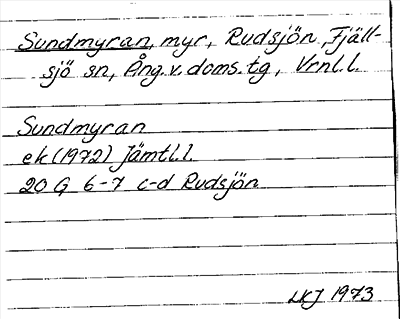 Sundmyran, myr, Rudsjön, Fjäll-
sjö sn, Ång.v.doms.tg, Vrnl.l.
Sundmyran
ek (1972) Jämtl.l.
20 G 6-7 c-d Rudsjön
LKJ 1973